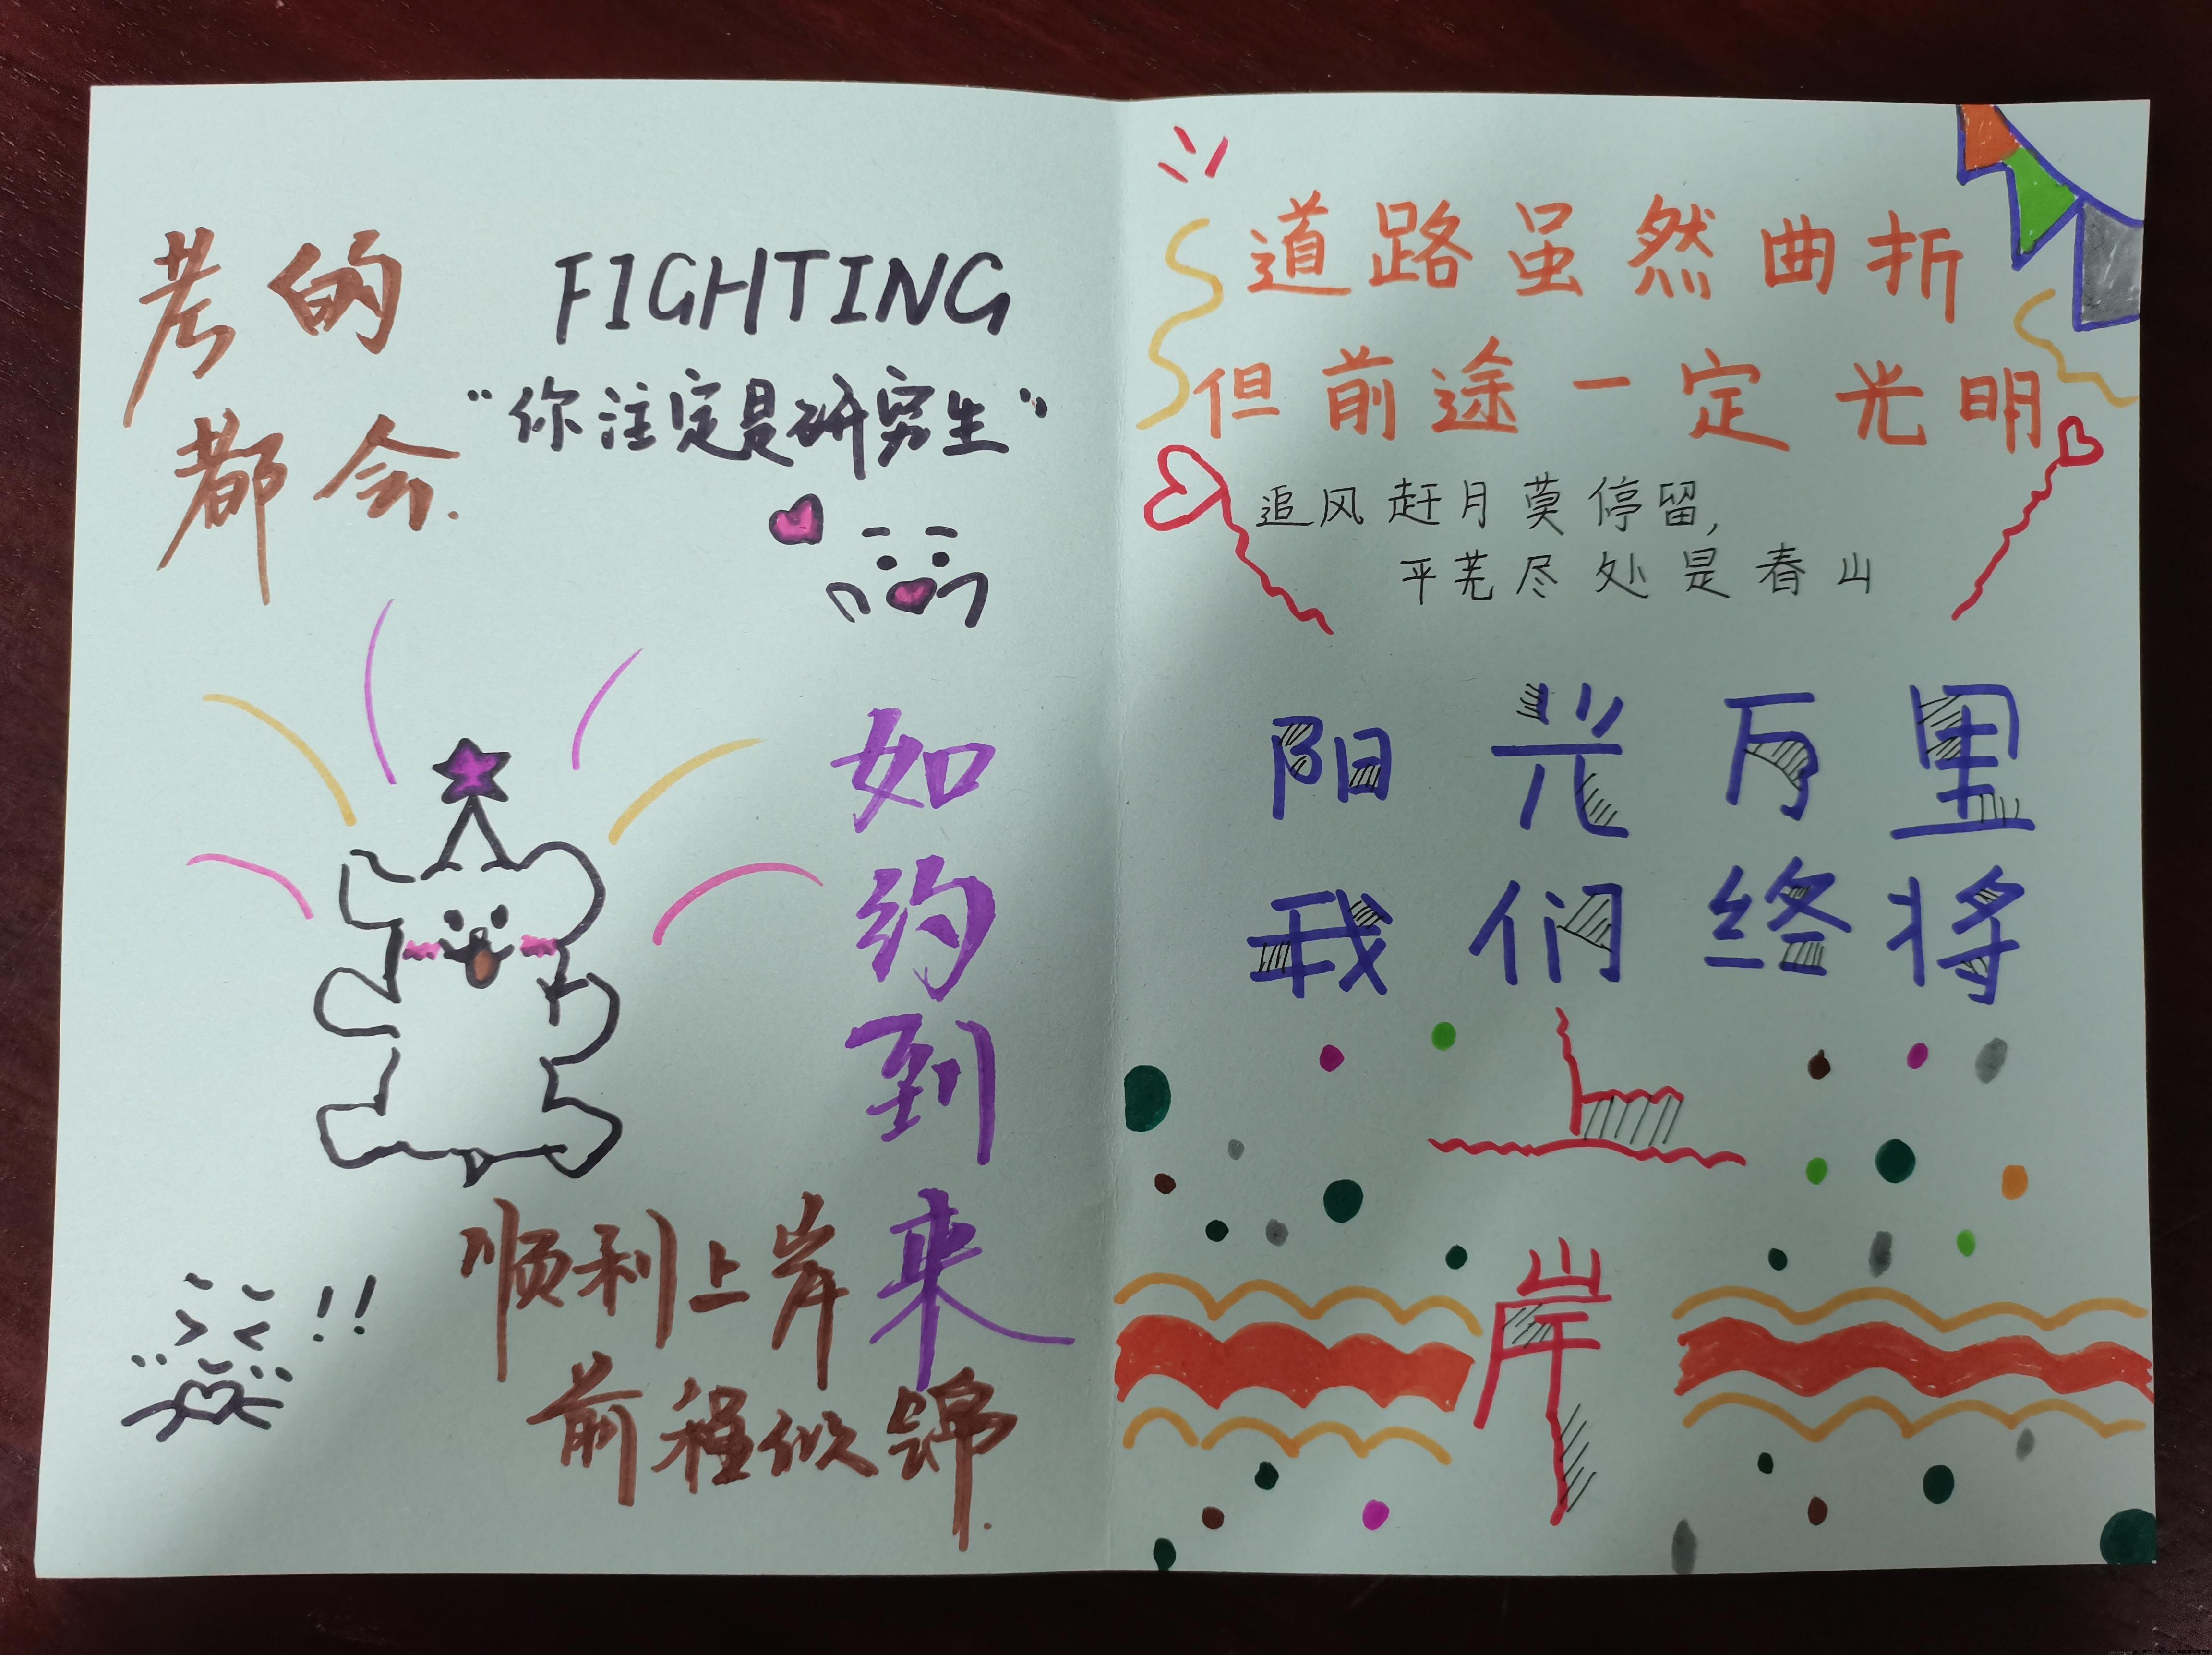 考的
都会.
FIGHTING
“你注定是研究生”
如约到来
顺利上岸
前程似锦.
!!
道路虽然曲折
但前途一定光明
追风赶月莫停留,
平芜尽处是春山
阳光万里
我们终将
上
岸